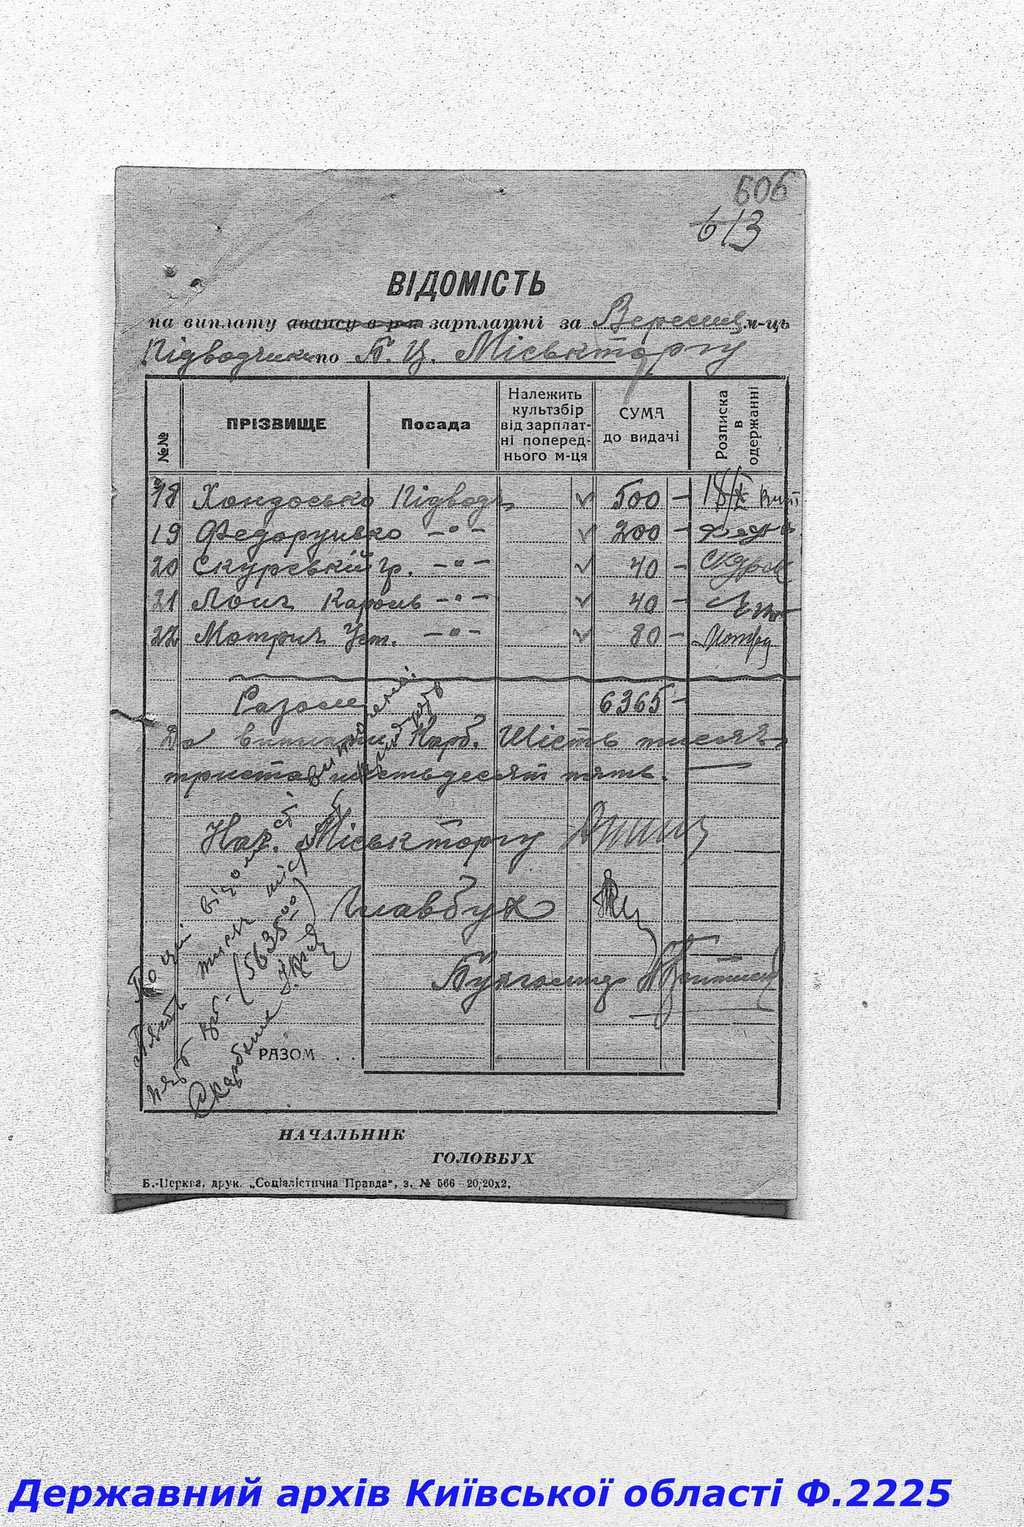 606
613
ВІДОМІСТЬ
на виплату авансу в р-к зарплатні за Вересень м-ць
Підводчики по Б. Ц. Міськторгу
№№ ПРІЗВИЩЕ Посада Належить культзбір від зарплатні попереднього м-ця СУМА до видачі Розписка в одержанні
18 Хондосько Підводч. ✓ 500 – 18/X
19 Федорушко –"– ✓ 200 –
20 Скурській гр. –"– ✓ 40 –
21 Лоич Кароль –"– ✓ 40 –
22 Мотрич Уст. –"– ✓ 80 –
Разом 6365 –
До виплати Карб. Шість тисяч
триста шістьдесят пять.
Нач. Міськторгу
Главбух
По цій відомості виплочені
Пять тисяч шістсот тридцять
пять крб. (5635-00)
Скарбник
РАЗОМ . . .
НАЧАЛЬНИК
ГОЛОВБУХ
Б.-Церква, друк. „Соціалістична Правда", з. № 566–20,20х2.
Державний архів Київської області Ф.2225